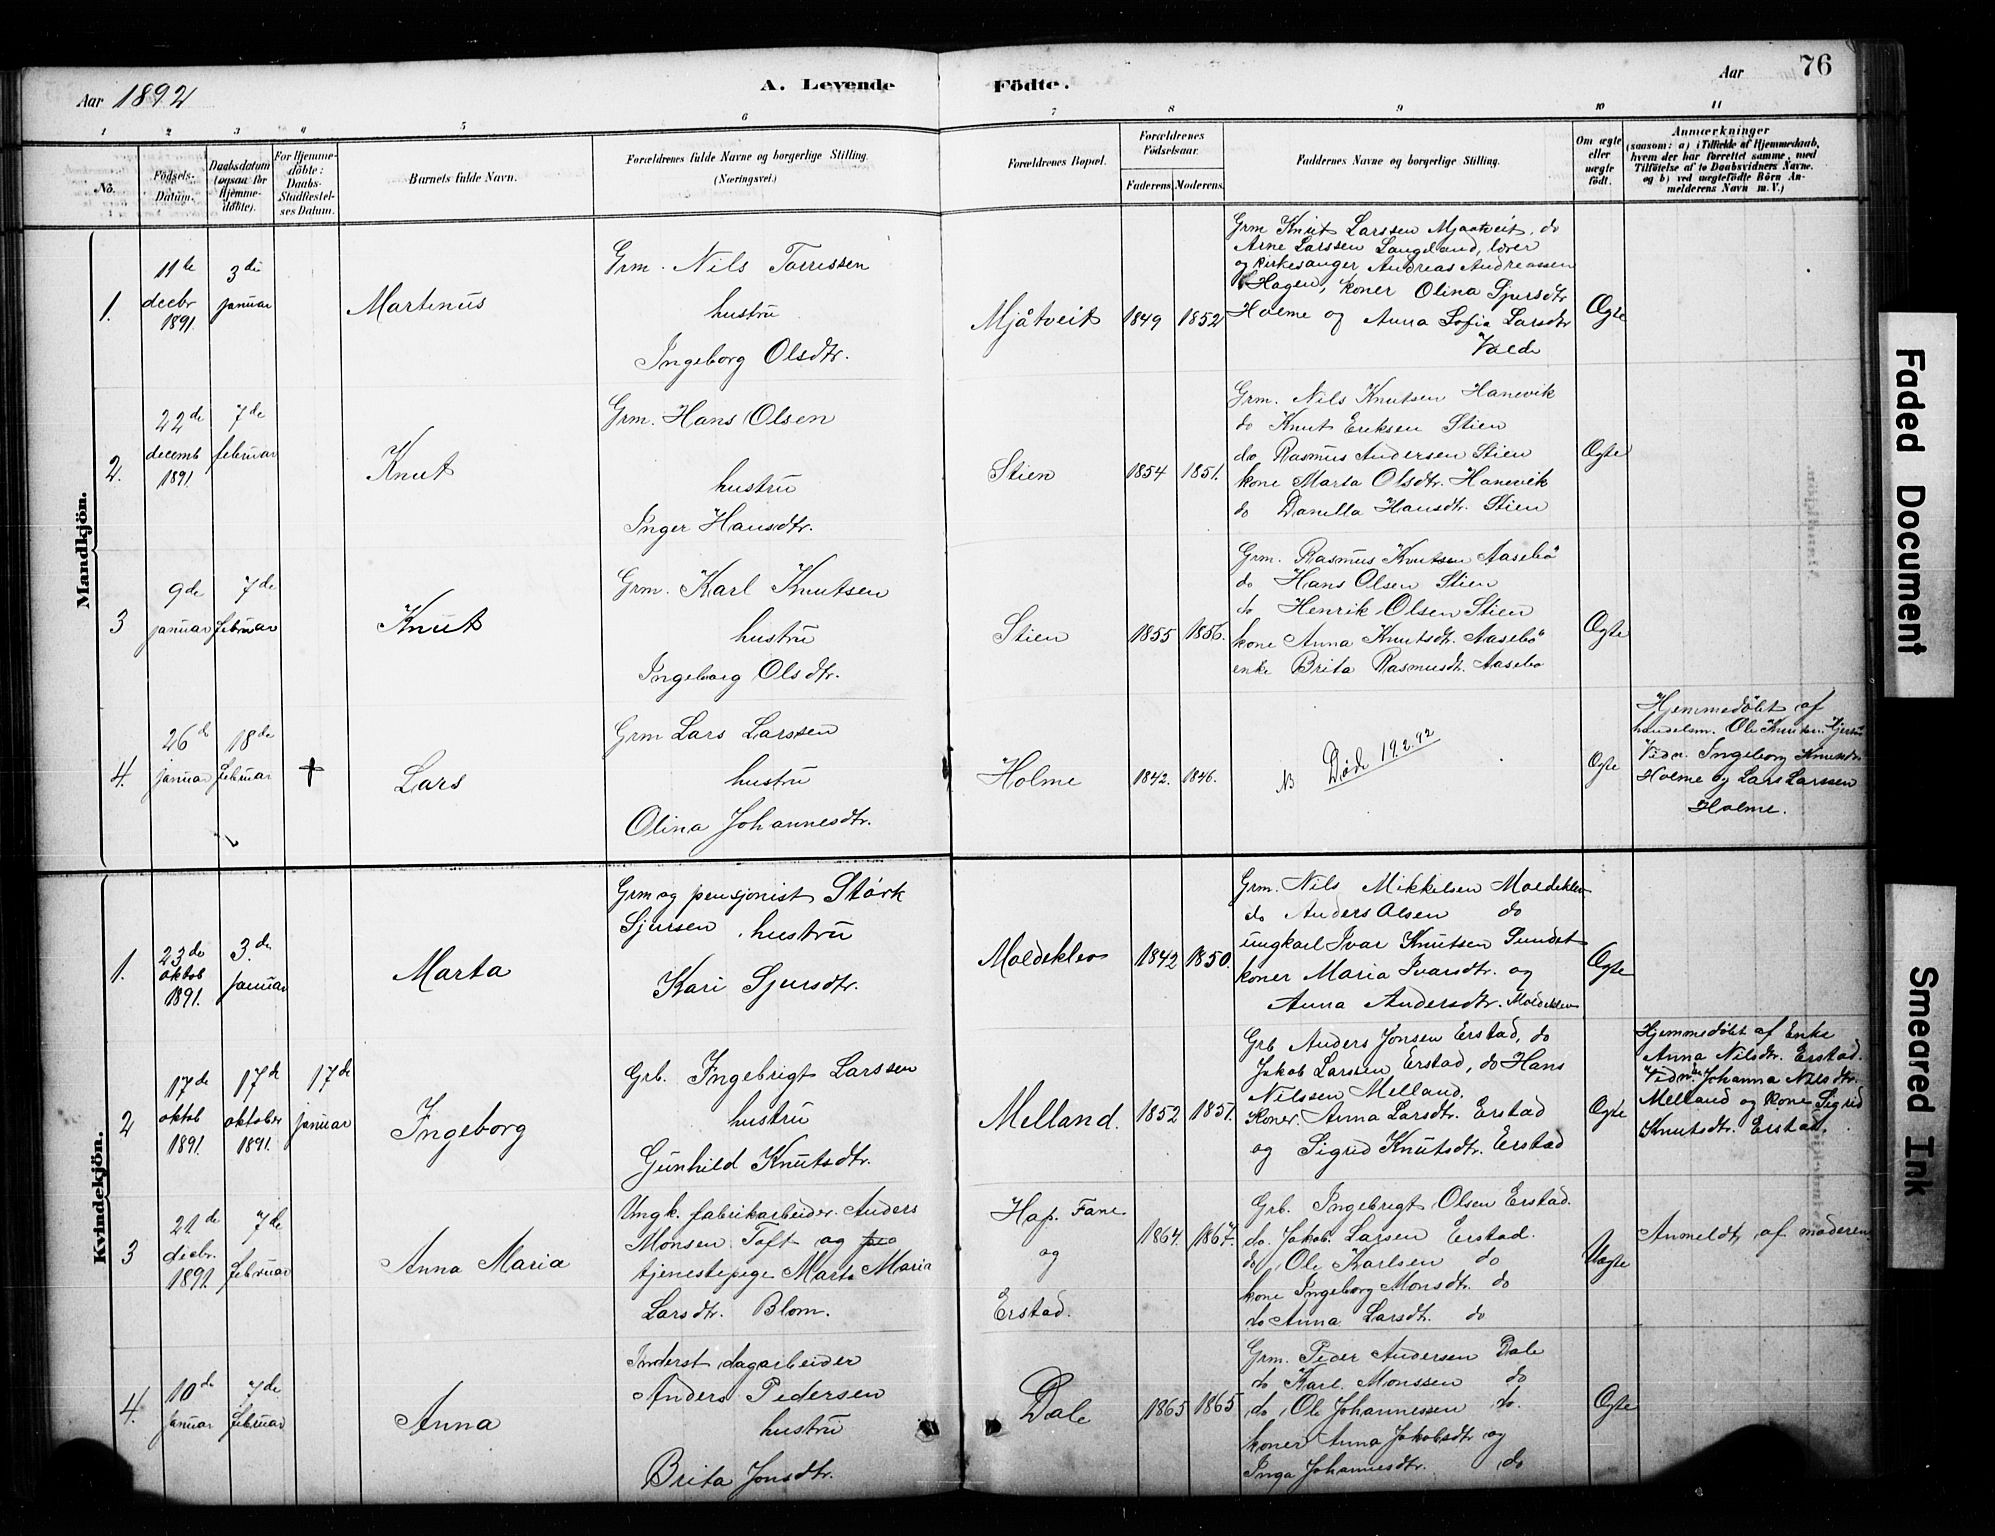 Aar 1892
A. Levende
Födte.
Aar 76
1 2 3 4 5 6 7 8 9 10 11
No.
Födsels-Datum.
Daabsdatum (ogsaa for Hjemmedöbte).
For Hjemmedöbte: Daabs-Stadfæstelses Datum.
Barnets fulde Navn.
Forældrenes fulde Navne og borgerlige Stilling. (Næringsvei.)
Forældrenes Bopæl.
Forældrenes Födselsaar.
Faderens. Moderens.
Faddernes Navne og borgerlige Stilling.
Om ægte eller uægte født.
Anmærkninger
(saasom: a) i Tilfælde af Hjemmedaab,
hvem der har forrettet samme, med
Tilföielse af to Daabsvidners Navne.
og b) ved uægtefödte Börn An-
melderens Navn m. V.)
Mandkjön.
1.
11te decbr 1891
3die januar
Martinus
Grm. Nils Torrissen
hustru
Ingeborg Olsdtr.
Mjåtveit
1849
1852
Grm Knut Larssen Mjaatveit, do
Arne Larssen Langeland, lærer
og kirkesanger Andreas Andreassen
Hagen, koner Olina Sjursdtr
Holme og Anna Sofia Larsdtr
Valde
Ægte
2.
22de decemb 1891
7de februar
Knut
Grm. Hans Olsen
hustru
Inger Hansdtr.
Stien
1854
1851.
Grm. Nils Knutsen Hanevik
do Knut Eriksen Stien
do Rasmus Andersen Stien
kone Marta Olsdtr. Hanevik
do Danella Hansdtr. Stien
Ægte
3
9de januar
7de februar
Knut
Grm. Karl Knutsen
hustru
Ingeborg Olsdtr.
Stien
1855
1856.
Grm. Rasmus Knutsen Aasebö
do Hans Olsen Stien
do Henrik Olsen Stien
kone Anna Knutsdtr. Aasebö
enke Brita Rasmusdt. Aasebo
Ægte
4.
26de januar
18de februar
†
Lars
Grm Lars Larssen
hustru
Olina Johannesdtr.
Holme
1842.
1846.
NB Død 19.2.92
Ægte
Hjemmedöbt af
handelsm. Ole Knutsen
Vidn. Ingeborg Knutsdtr
Holme og Lars Larssen
Holme.
Kvindekjön.
1.
23de oktob 1891.
3.die januar
Marta
Grm og pensjonist Störk
Sjursen, hustru
Kari Sjursdtr.
Moldeklev
1842
1850.
Grm. Nils Mikkelsen Moldeklev
do Anders Olsen do
ungkarl Ivar Knutsen Sundet
koner Maria Ivarsdtr. og
Anna Andersdtr. Moldeklev
Ægte
2
17de oktob 1891
17de oktober 1891.
17de januar
Ingeborg
Grb. Ingebrigt Larssen
hustru
Gunhild Knutsdtr.
Melland.
1852
1851.
Grb Anders Jonsen Erstad, do
Jakob Larsen Erstad, do Hans
Nilssen Melland.
Koner. Anna Larsdtr. Erstad
og Sigrid Knutsdtr. Erstad
Ægte
Hjemmedöbt af Enke
Anna Nilsdtr. Erstad.
Vidn. Johanna Nilsdtr.
Melland og kone Sigrid
Knutsdtr. Erstad.
3
21de decbr. 1891
7de februar
Anna Maria
Ungk. fabrikarbeider Anders
Monsen Toft og
tjenestepige Marta Maria
Larsdtr. Blom.
Hop. Fane
og
Erstad.
1864.
1867.
Grb. Ingebrigt Olsen Erstad.
do. Jakob Larsen Erstad.
do, Ole Karlsen do
kone Ingeborg Monsdtr. do
do Anna Larsdtr. do
Uægte
Anmeldt af moderen
4.
10de januar
7de februar
Anna
Inderst, dagarbeider
Anders Pedersen
hustru
Brita Jonsdtr.
Dale
1865
1865
Grm. Peder Andersen Dale
do Karl. Monssen do
do, Ole Johannessen do.
koner Anna Jakobsdtr og
Inga Johannesdtr. do
Ægte
Faded Document
Smeared Ink